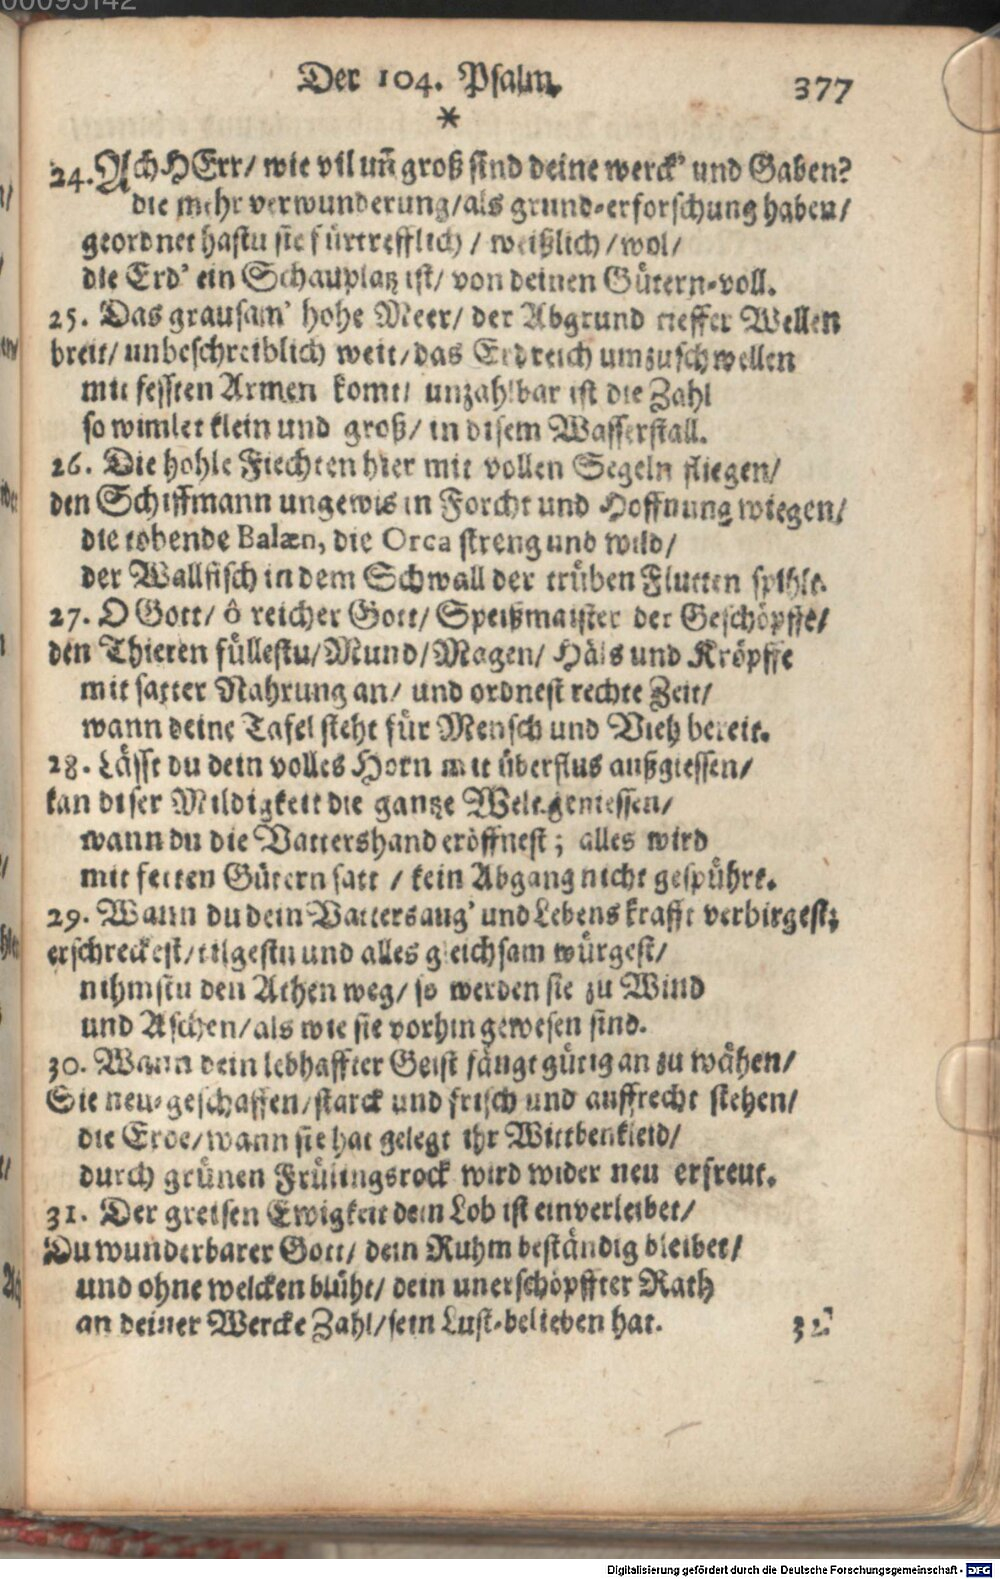 Der 104. Psalm.
377
*
24. Ach HErr/ wie vil uñ groß sind deine werck' und Gaben?
die mehr verwunderung/als grund-erforschung haben/
geordnet hastu sie fürtrefflich/ weißlich/wol/
die Erd' ein Schauplatz ist/ von deinen Gütern-voll.
25. Das grausam' hohe Meer/ der Abgrund tieffer Wellen
breit/ unbeschreiblich weit/das Erdreich umzuschwellen
mit fessten Armen komt/ unzahlbar ist die Zahl
so wimlet klein und groß/ in disem Wasserstall.
26. Die hohle Fiechten hier mit vollen Segeln fliegen/
den Schiffmann ungewis in Forcht und Hoffnung wiegen/
die tobende Balæn, die Orca streng und wild/
der Wallfisch in dem Schwall der trüben Flutten spihlt.
27. O Gott/ ô reicher Gott/ Speißmaister der Geschöpffe/
den Thieren füllestu/Mund/Magen/ Häls und Kröpffe
mit satter Nahrung an/ und ordnest rechte Zeit/
wann deine Tafel steht für Mensch und Vieh bereit.
28. Lässt du dein volles Horn mit überflus außgiessen/
kan diser Mildigkeit die gantze Welt geniessen/
wann du die Vattershand eröffnest; alles wird
mit fetten Gütern satt / kein Abgang nicht gespührt.
29. Wann du dein Vattersaug' und Lebenskrafft verbirgest;
erschreckest/tilgestu und alles gleichsam würgest/
nihmstu den Athen weg/ so werden sie zu Wind
und Aschen/als wie sie vorhin gewesen sind.
30. Wann dein lebhaffter Geist fängt gütig an zu wähen/
Sie neu-geschaffen/starck und frisch und auffrecht stehen/
die Erde/wann sie hat gelegt ihr Wittbenkleid/
durch grünen Frülingsrock wird wider neu erfreut.
31. Der greisen Ewigkeit dein Lob ist einverleibet/
Du wunderbarer Gott/ dein Ruhm beständig bleibet/
und ohne welcken blüht/ dein unerschöpffter Rath
an deiner Wercke Zahl/sein Lust-belieben hat.
32.
Digitalisierung gefördert durch die Deutsche Forschungsgemeinschaft - DFG